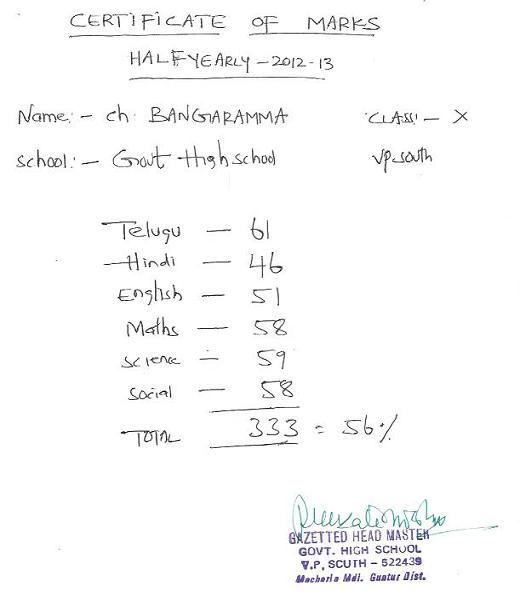 CERTIFICATE OF MARKS
HALFYEARLY - 2012-13
Name:- ch. BANGARAMMA CLASS:- X
School:- Govt High school VP-South
Telugu - 61
Hindi - 46
English - 51
Maths - 58
Science - 59
Social - 58
TOTAL 333 = 56%
GAZETTED HEAD MASTER
GOVT. HIGH SCHOOL
V.P. SOUTH - 522439
Macherla Mdl. Guntur Dist.